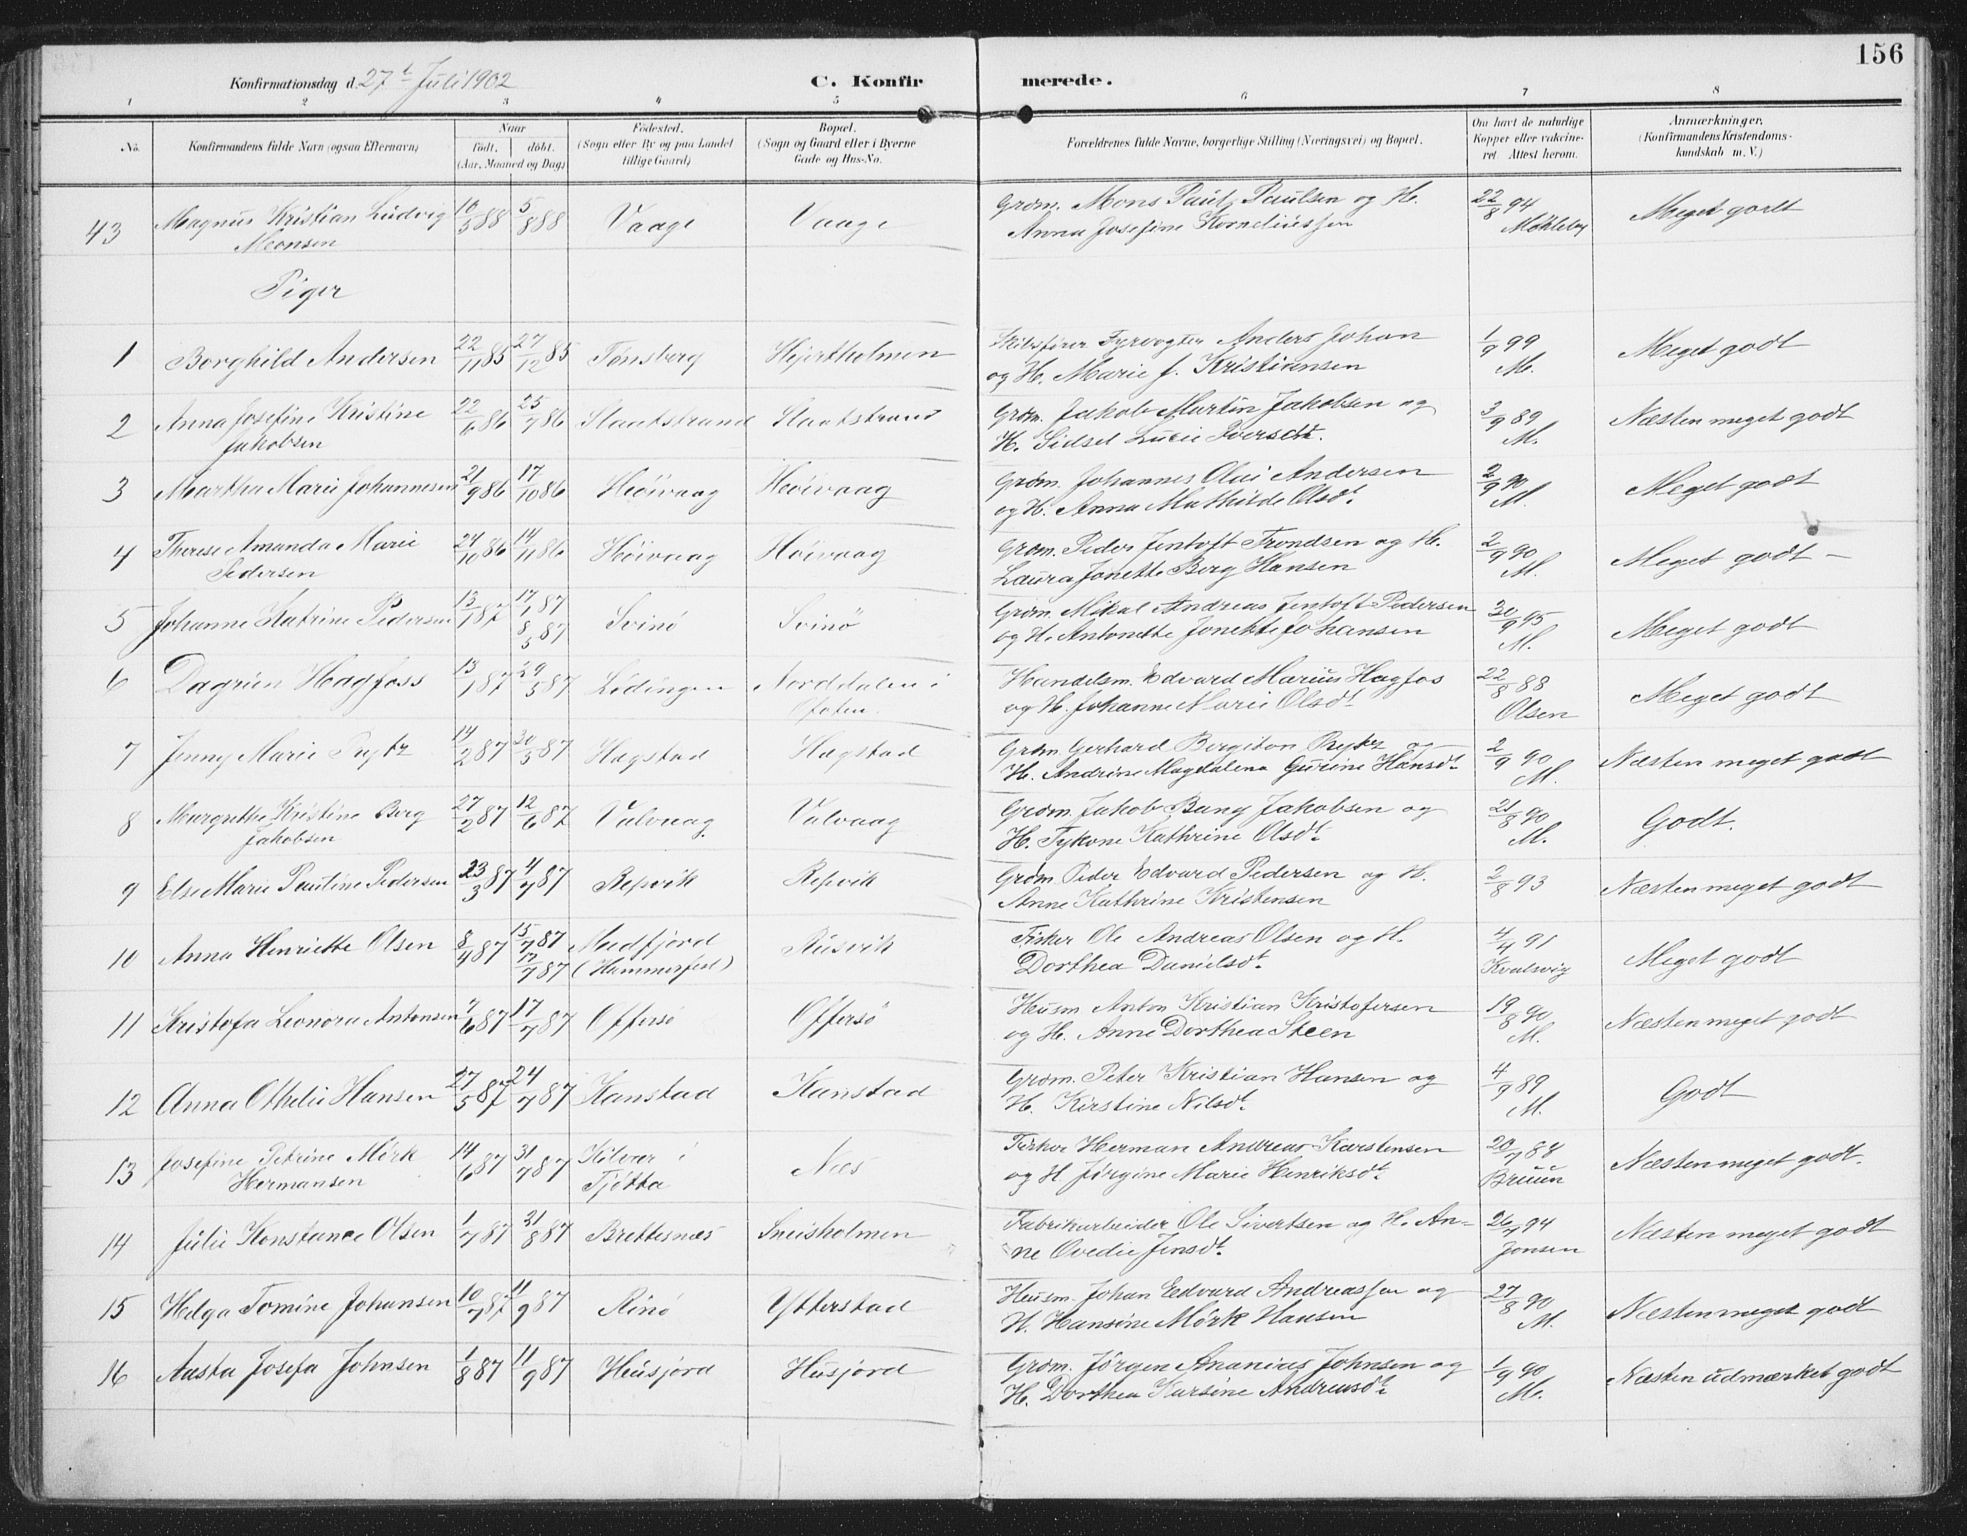 156
Konfirmationsdag d. 27t Juli 1902 C. Konfirmerede.
1 2 3 4 5 6 7 8
No. Konfirmandens fulde Navn (ogsaa Efternavn) Naar født. døbt. (Aar, Maaned og Dag) Fødested. (Sogn eller By og paa Landet tillige Gaard) Bopæl. (Sogn og Gaard eller i Byerne Gade og Hus-No. Forældrenes fulde Navne, borgerlige Stilling (Næringsvei) og Bopæl. Om havt de naturlige Kopper eller vakcineret Attest herom. Anmærkninger. (Konfirmandens Kristendomskundskab m. V.)
43 Magnus Kristian Ludvig 10/5 88 5/8 88 Vaage Vaage Grdm. Mons Paul Paulsen og H. 22/8 94 Meget godt
Monsen Anna Josefine Korneliussen Møhleby
Piger
1 Borghild Andersen 22/11 85 27/12 85 Tønsberg Hjertholmen Skibsfører Fyrvogter Anders Johan 1/9 99 Meget godt
og H. Marie J. Kristiansen M.
2 Anna Josefine Kristine 22/6 86 25/7 86 Slaatstrand Slaatstrand Grdm. Jakob Martin Jakobsen og 3/9 89 Næsten meget godt
Jakobsen H. Sidsel Lucie Iversdt. M.
3 Martha Marie Johannesen 21/9 86 17/10 86 Høivaag Høivaag Grdm. Johannes Olai Andersen 2/9 90 Meget godt
og H. Anna Mathilde Olsdt. M.
4 Therese Amanda Marie 24/10 86 14/11 86 Høivaag Høivaag Grdm. Peder Jentoft Trondsen og H. 2/9 90 Meget godt –
Pedersen Laura Jonette Berg Hansen M.
5 Johanne Katrine Pedersen 13/1 87 17/1 87 Svinø Svinø Grdm. Mikal Andreas Jentoft Pedersen 30/9 95 Meget godt
8/5 87 og H. Antonette Jonette Johansen M.
6 Dagrun Hagfoss 13/1 87 29/5 87 Lødingen Norddalen i Handelsm. Edvard Marius Hagfos 22/8 88 Meget godt
Ofoten. og H. Johanne Marie Olsdt Olsen
7 Jenny Marie 14/2 87 30/5 87 Hagstad Hagstad Grdm. Gerhard Bergiton og 2/9 90 Næsten meget godt
H. Andrine Magdalena Gurine Hansdt. M.
8 Margrethe Kristine Berg 27/2 87 12/6 87 Valvaag Valvaag Grdm. Jakob Bang Jakobsen og 21/8 90 Godt.
Jakobsen H. Tykone Kathrine Olsdt. M.
9 Else Marie Pauline Pedersen 23/3 87 4/7 87 Repvik Repvik Grdm. Peder Edvard Pedersen og H. 2/8 93 Næsten meget godt
Anne Kathrine Kristensen
10 Anna Henriette Olsen 8/4 87 15/7 87 Medfjord Rusvik Fisker Ole Andreas Olsen og H. 4/4 91 Meget godt
17/7 87 (Hammerfest) Dorthea Danielsdt. Kvalsvig
11 Kristofa Leonora Antonsen 7/6 87 17/7 87 Offersø Offersø Husm Anton Kristian Kristofersen 19/8 90 Næsten meget godt
og H. Anne Dorthea Steen M.
12 Anna Othelie Hansen 27/5 87 24/7 87 Kanstad Kanstad Grdm. Peter Kristian Hansen og 4/9 89 Godt
H. Kirstine Nilsdt. M.
13 Josefine Petrine Mørk 14/6 87 31/7 87 Kilvær i Næs Fisker Herman Andreas Karstensen 20/7 88 Næsten meget godt.
Hermansen Tjøtta og H. Jørgine Marie Henriksdt. Bruun
14 Julie Konstance Olsen 1/7 87 21/8 87 Brettesnæs Sneisholmen Fabrikarbeider Ole Sivertsen og H. An- 26/7 94 Næsten meget godt
ne Ovedie Jensdt. Jonsen
15 Helga Tomine Johansen 10/7 87 11/9 87 Rinø Ytterstad Husm. Johan Edvard Andreassen og 27/8 90 Næsten meget godt
H. Hansine Mørk Hansen M.
16 Aasta Josefa Johnsen 1/8 87 11/9 87 Husjord Husjord Grdm. Jørgen Ananias Johnsen og 1/9 90 Næsten udmærket godt
H. Dorthea Karsine Andreasdt. M.